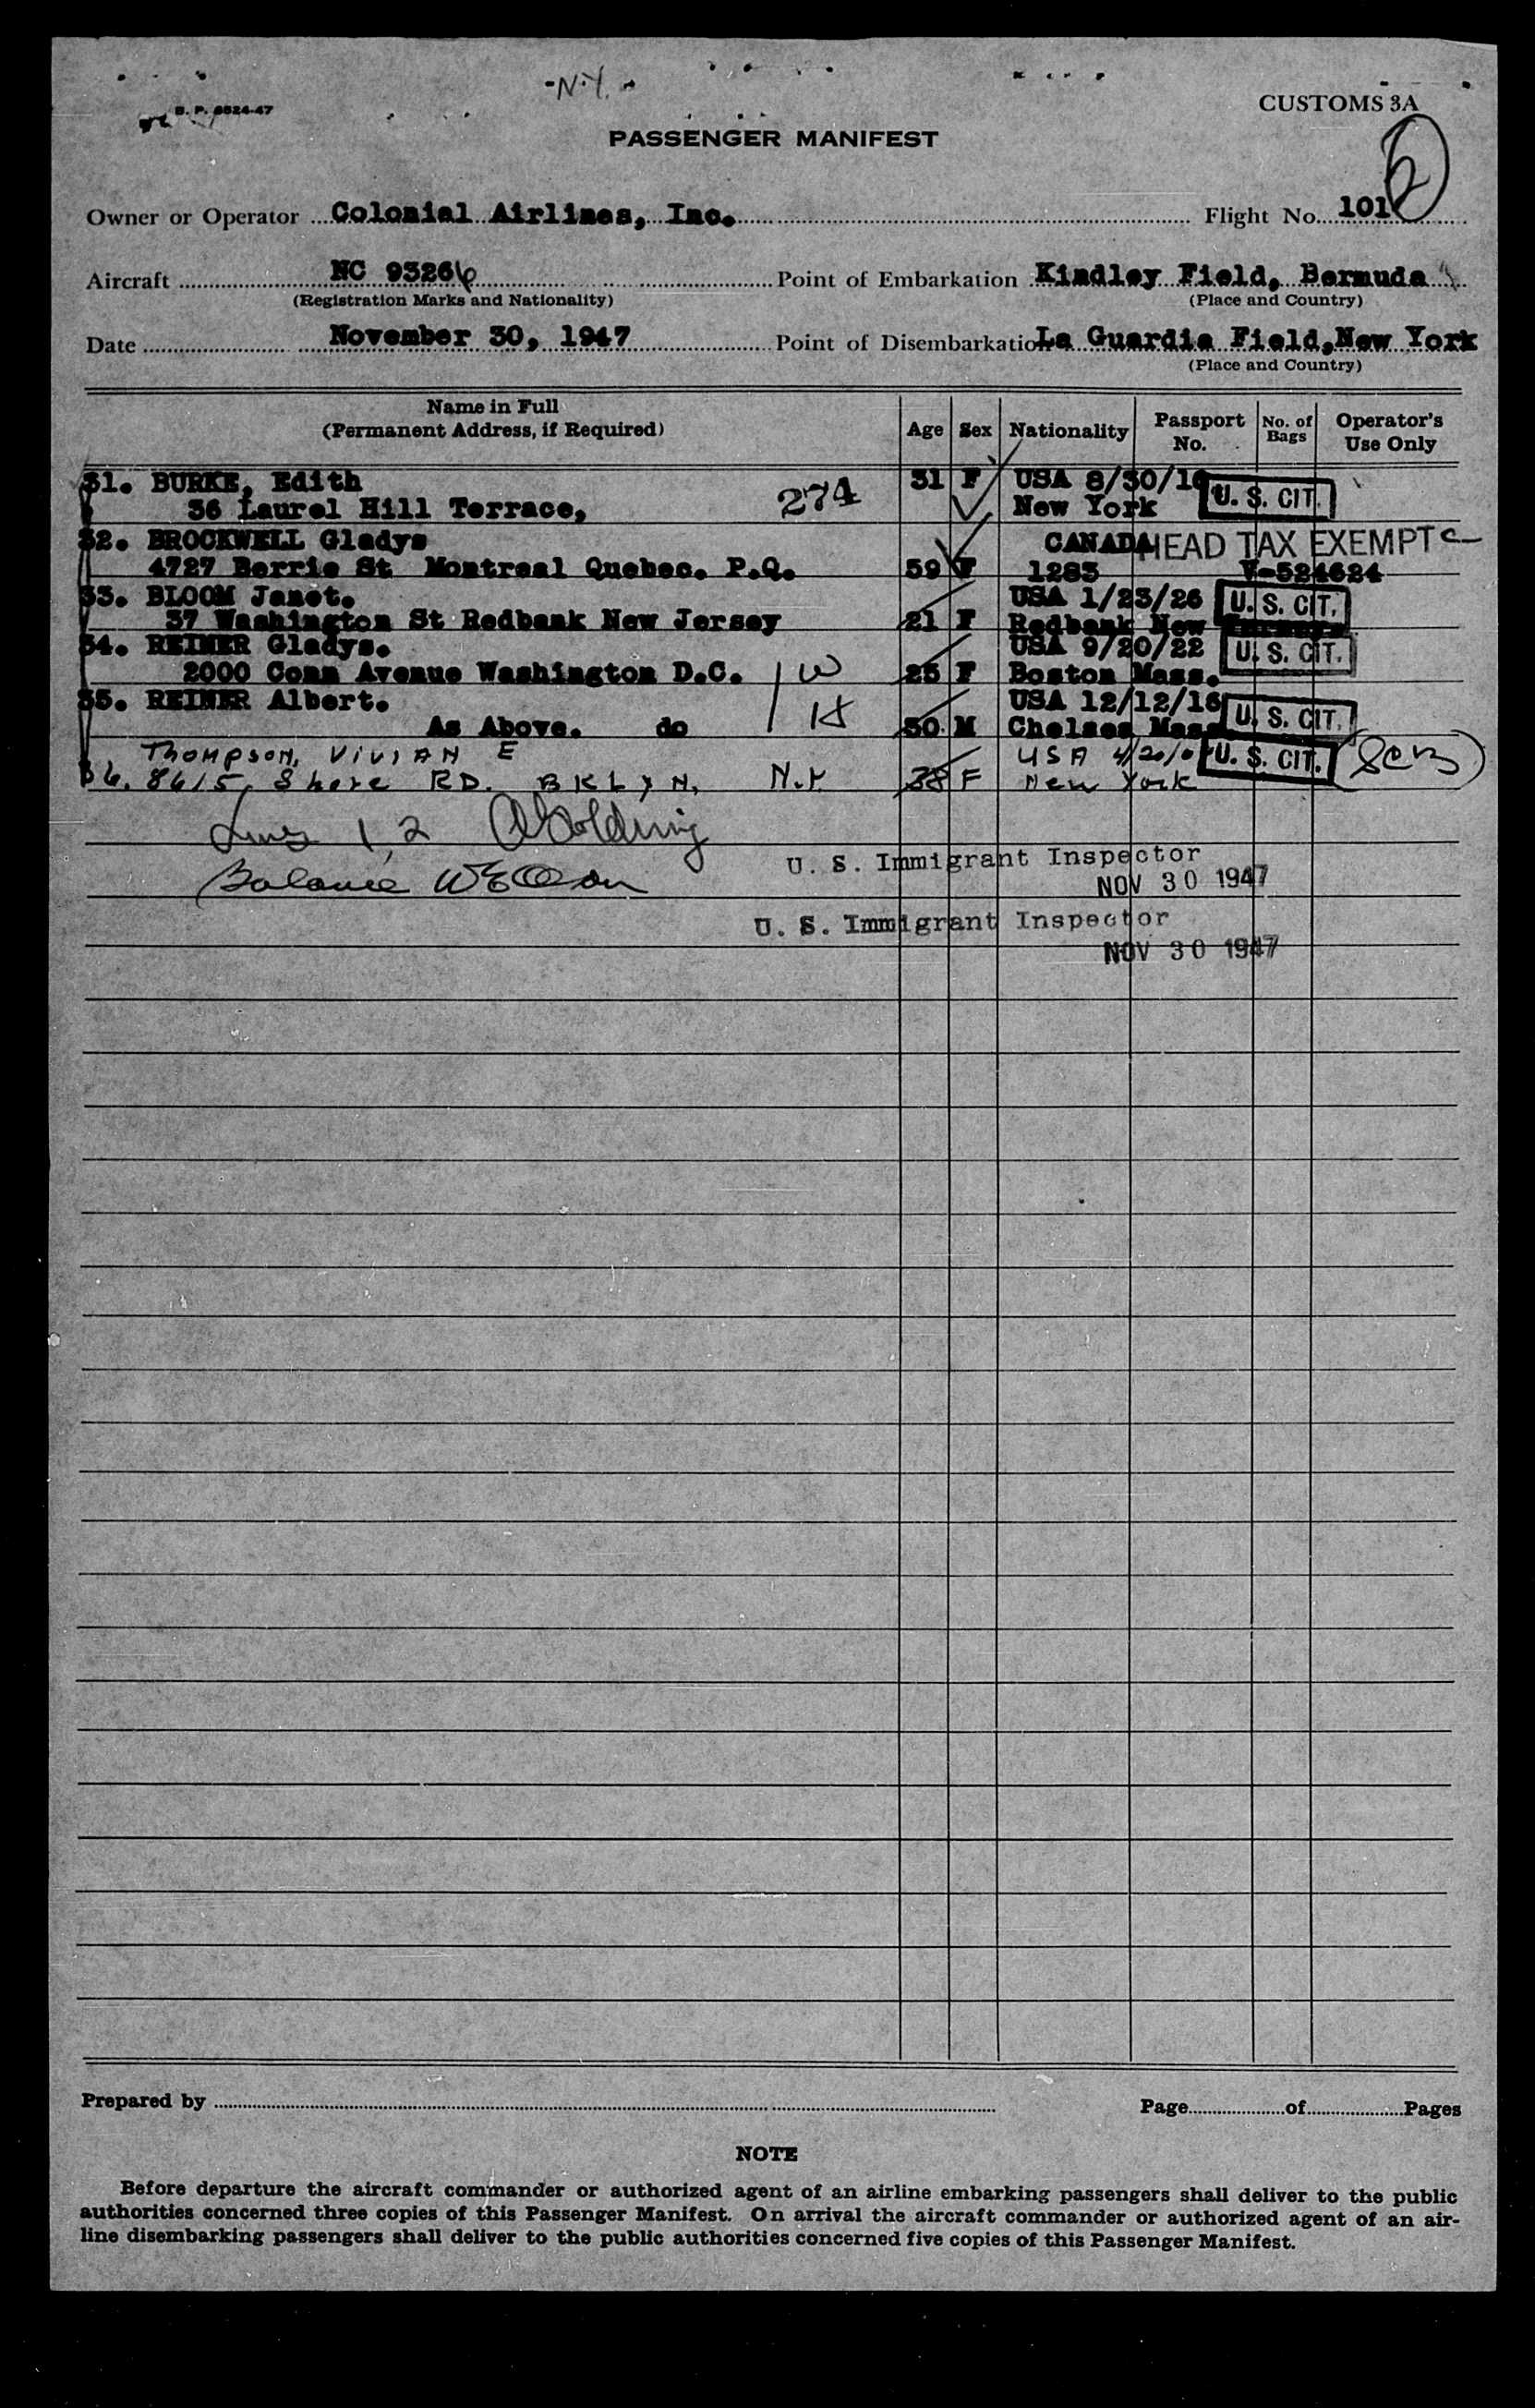 -N.Y.-
B. P. 8524-47
CUSTOMS 3A
PASSENGER MANIFEST
2
Owner or Operator Colonial Airlines, Inc. Flight No. 101
Aircraft NC 93266 Point of Embarkation Kindley Field, Bermuda
(Registration Marks and Nationality) (Place and Country)
Date November 30, 1947 Point of Disembarkation La Guardia Field, New York
(Place and Country)
Name in Full
(Permanent Address, if Required) Age Sex Nationality Passport No. No. of Bags Operator's Use Only
31. BURKE, Edith 31 F USA 8/30/16 U. S. CIT.
36 Laurel Hill Terrace, 274 New York
32. BROCKWELL Gladys CANADA HEAD TAX EXEMPT
4727 Berrie St Montreal Quebec. P.Q. 59 F 1283 V-524624
33. BLOOM Janet. USA 1/23/26 U. S. CIT.
37 Washington St Redbank New Jersey 21 F Redbank New
34. REINER Gladys. USA 9/20/22 U. S. CIT.
2000 Conn Avenue Washington D.C. W 25 F Boston Mass.
35. REINER Albert. USA 12/12/16 U. S. CIT.
As Above. do H 30. M Chelsea Mass
Thompson, Vivian E USA 4/20/0 U. S. CIT.
36. 8615, Shore RD. BKLYN, N.Y. 38 F New York
Lines 1, 2 Golding
U. S. Immigrant Inspector
Balance
NOV 30 1947
U. S. Immigrant Inspector
NOV 30 1947
Prepared by Page of Pages
NOTE
Before departure the aircraft commander or authorized agent of an airline embarking passengers shall deliver to the public
authorities concerned three copies of this Passenger Manifest. On arrival the aircraft commander or authorized agent of an air-
line disembarking passengers shall deliver to the public authorities concerned five copies of this Passenger Manifest.